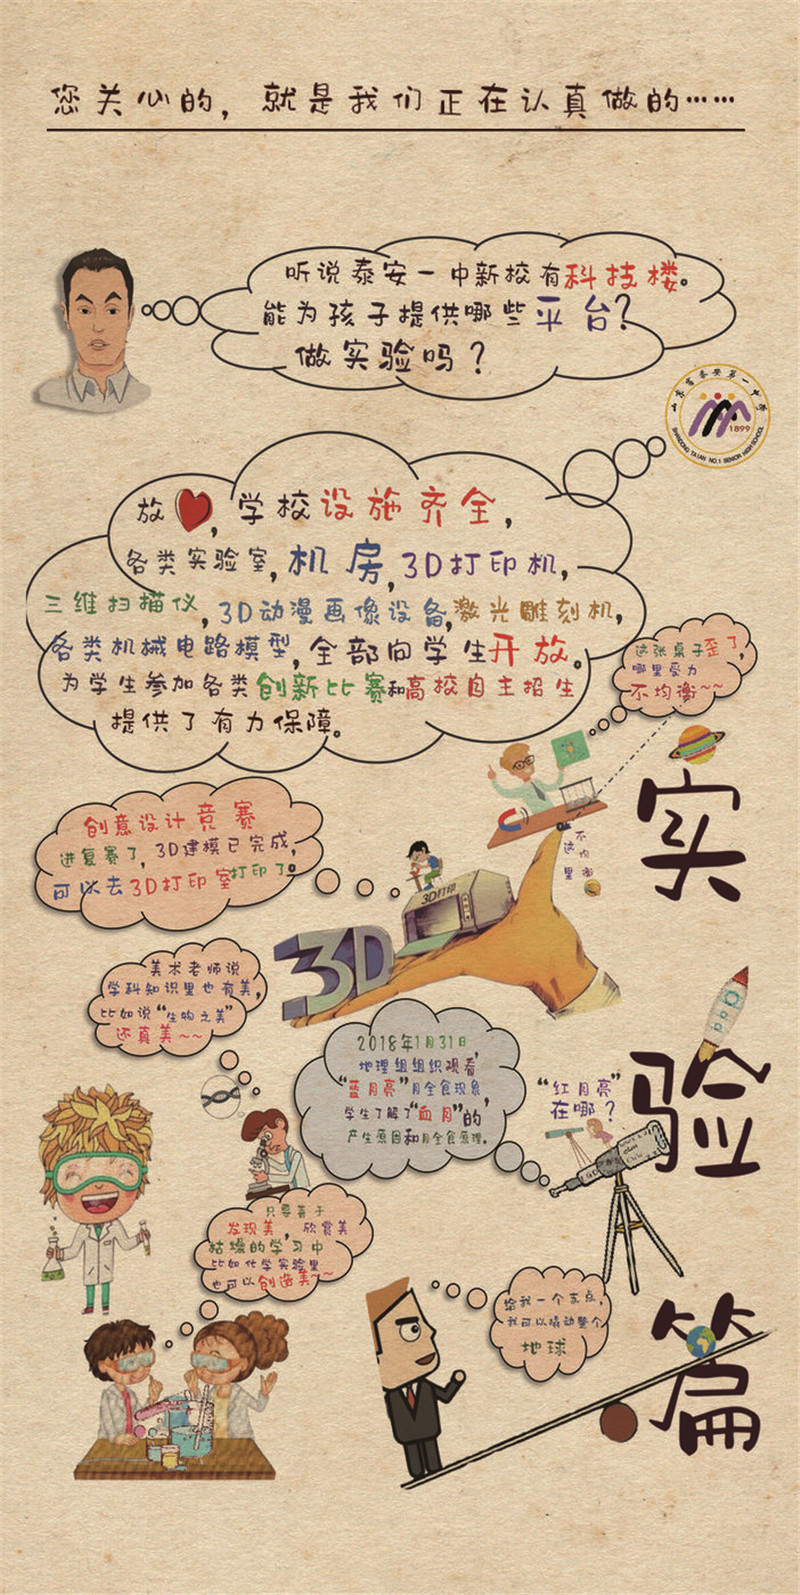 您关心的，就是我们正在认真做的……
听说泰安一中新校有科技楼。
能为孩子提供哪些平台？
做实验吗？
山东省泰安第一中学
1899
SHANDONG TAIAN NO.1 SENIOR HIGH SCHOOL
放，学校设施齐全，
各类实验室，机房，3D打印机，
三维扫描仪，3D动漫画像设备，激光雕刻机，
各类机械电路模型，全部向学生开放。
为学生参加各类创新比赛和高校自主招生
提供了有力保障。
这张桌子歪了，
哪里受力
不均衡~~
实
创意设计竞赛
进复赛了，3D建模已完成，
可以去3D打印室打印了。
不均衡
这里
3D打印
3D
美术老师说
学科知识里也有美，
比如说“生物之美”
还真美~~
2018年1月31日
地理组组织观看
“蓝月亮”月全食现象，
学生了解了“血月”的
产生原因和月全食原理。
“红月亮”
在哪？
验
只要善于
发现美，欣赏美
枯燥的学习中
比如化学实验里
也可以创造美~~
给我一个支点，
我可以撬动整个
地球
篇